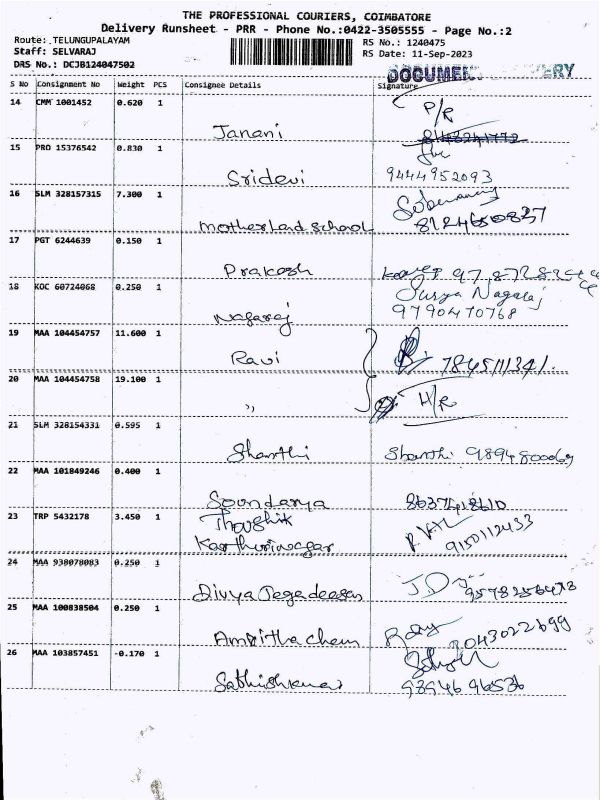 THE PROFESSIONAL COURIERS, COIMBATORE
Delivery Runsheet - PRR - Phone No.:0422-3505555 - Page No.:2
Route: TELUNGUPALAYAM
RS No.: 1240475
Staff: SELVARAJ
RS Date: 11-Sep-2023
DRS No.: DCJB124047502
DOCUMENT
S No Consignment No Weight PCS Consignee Details Signature
14 CMM 1001452 0.620 1 Janani P/R
15 PRO 15376542 0.830 1 Sridevi 9444952093
16 SLM 328157315 7.300 1 Motherland School 8124650837
17 PGT 6244639 0.150 1 Prakash
18 KOC 60724068 0.250 1 Nagaraj Surya Nagaraj 9790470768
19 MAA 104454757 11.600 1 Ravi 7845111341.
20 MAA 104454758 19.100 1 ,, H/R
21 SLM 328154331 0.595 1 Shanthi Shanthi 9894800069
22 MAA 101849246 0.400 1 Soundarya
23 TRP 5432178 3.450 1 Thoushik Kasthurinagar 9150112433
24 MAA 938078083 0.250 1 Divya Jegadeesan J.D 9578256473
25 MAA 100838504 0.250 1 Amritha chem
26 MAA 103857451 -0.170 1 Sathishkumar